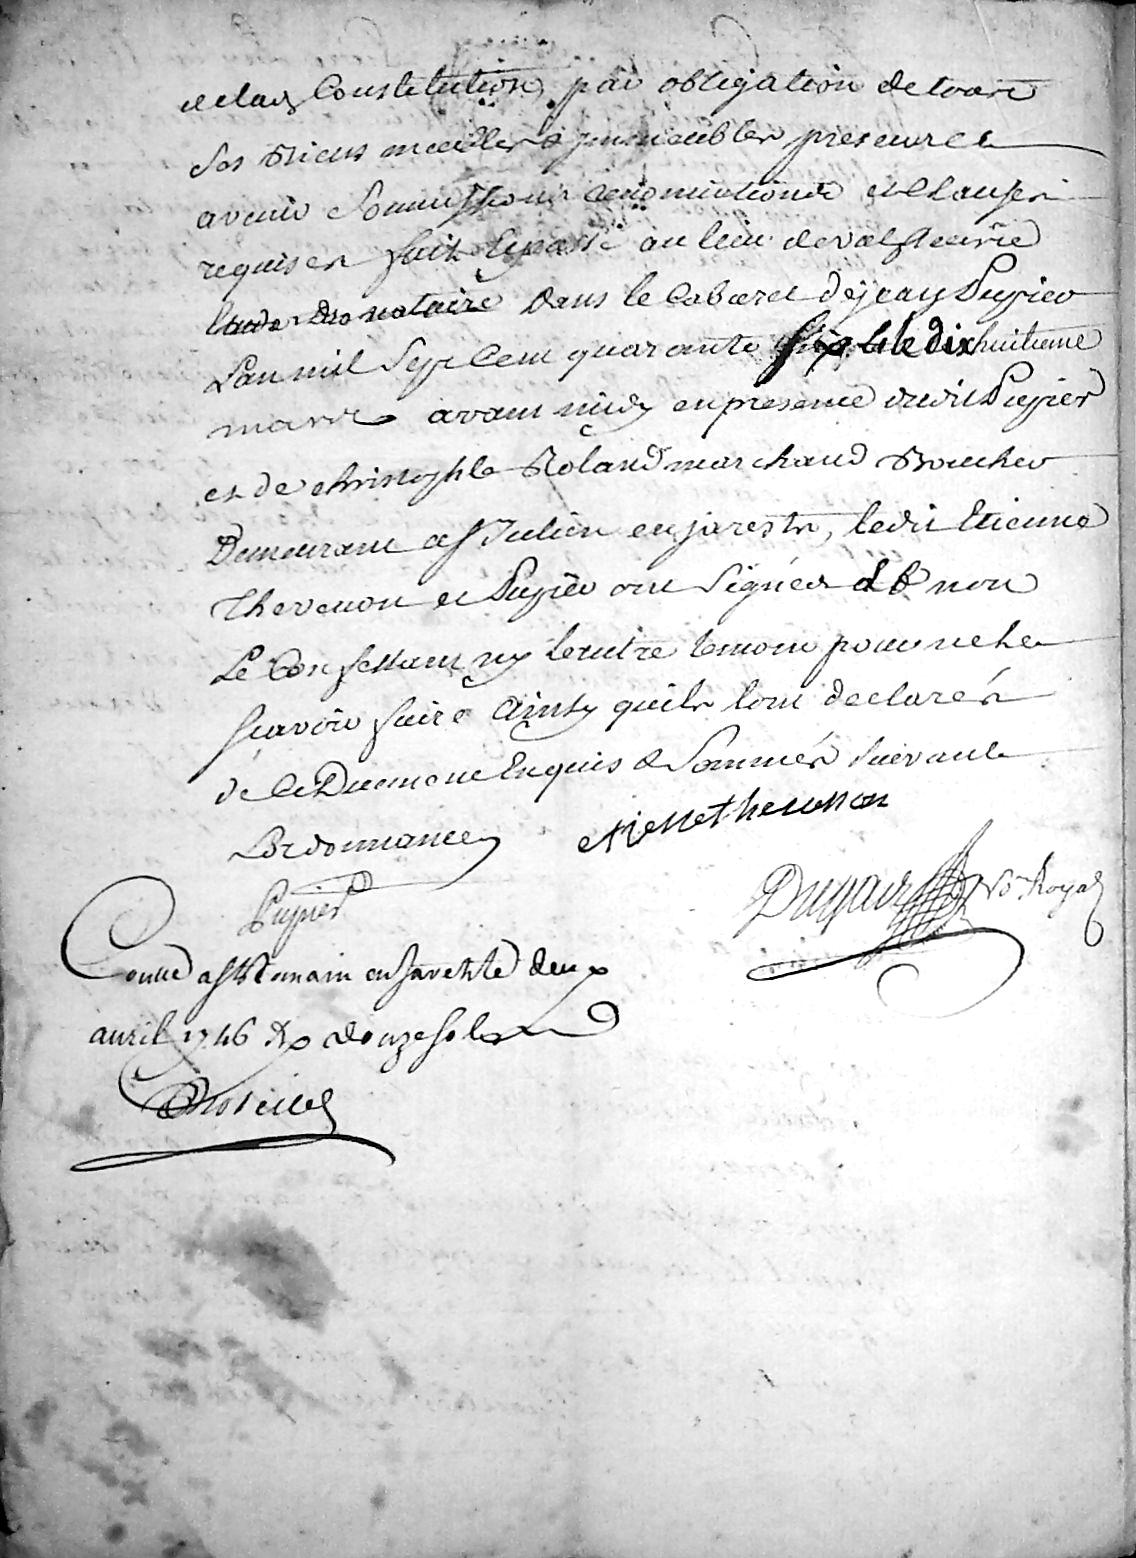 et la Constitution, par obligation de tous
ses Biens meubles & jmmeubles presents &
avenir Soumissions renonciations et Clauses
requises fait & passé au lieu de valfleurie
dans le Cabaret de jean Pupier
L'an mil Sept Cent quarante six & le dixhuitieme
mars avant midy en presence dudit Pupier
et de christophle Roland marchand Boucher
Demeurant a St Julien en jarests, ledit Etienne
Thevenon et Pupier ont Signés & non
Le Confessant ny lautre temoin pour ne le
sçavoir faire Ainsy quils lont declarés
de ce Duement Enquis & Sommés suivant
Lordonnance
etienne thevenon
Pupier
Royal
Conllé a St Romain en Jarest le deux
auril 1746 Rx douze sols